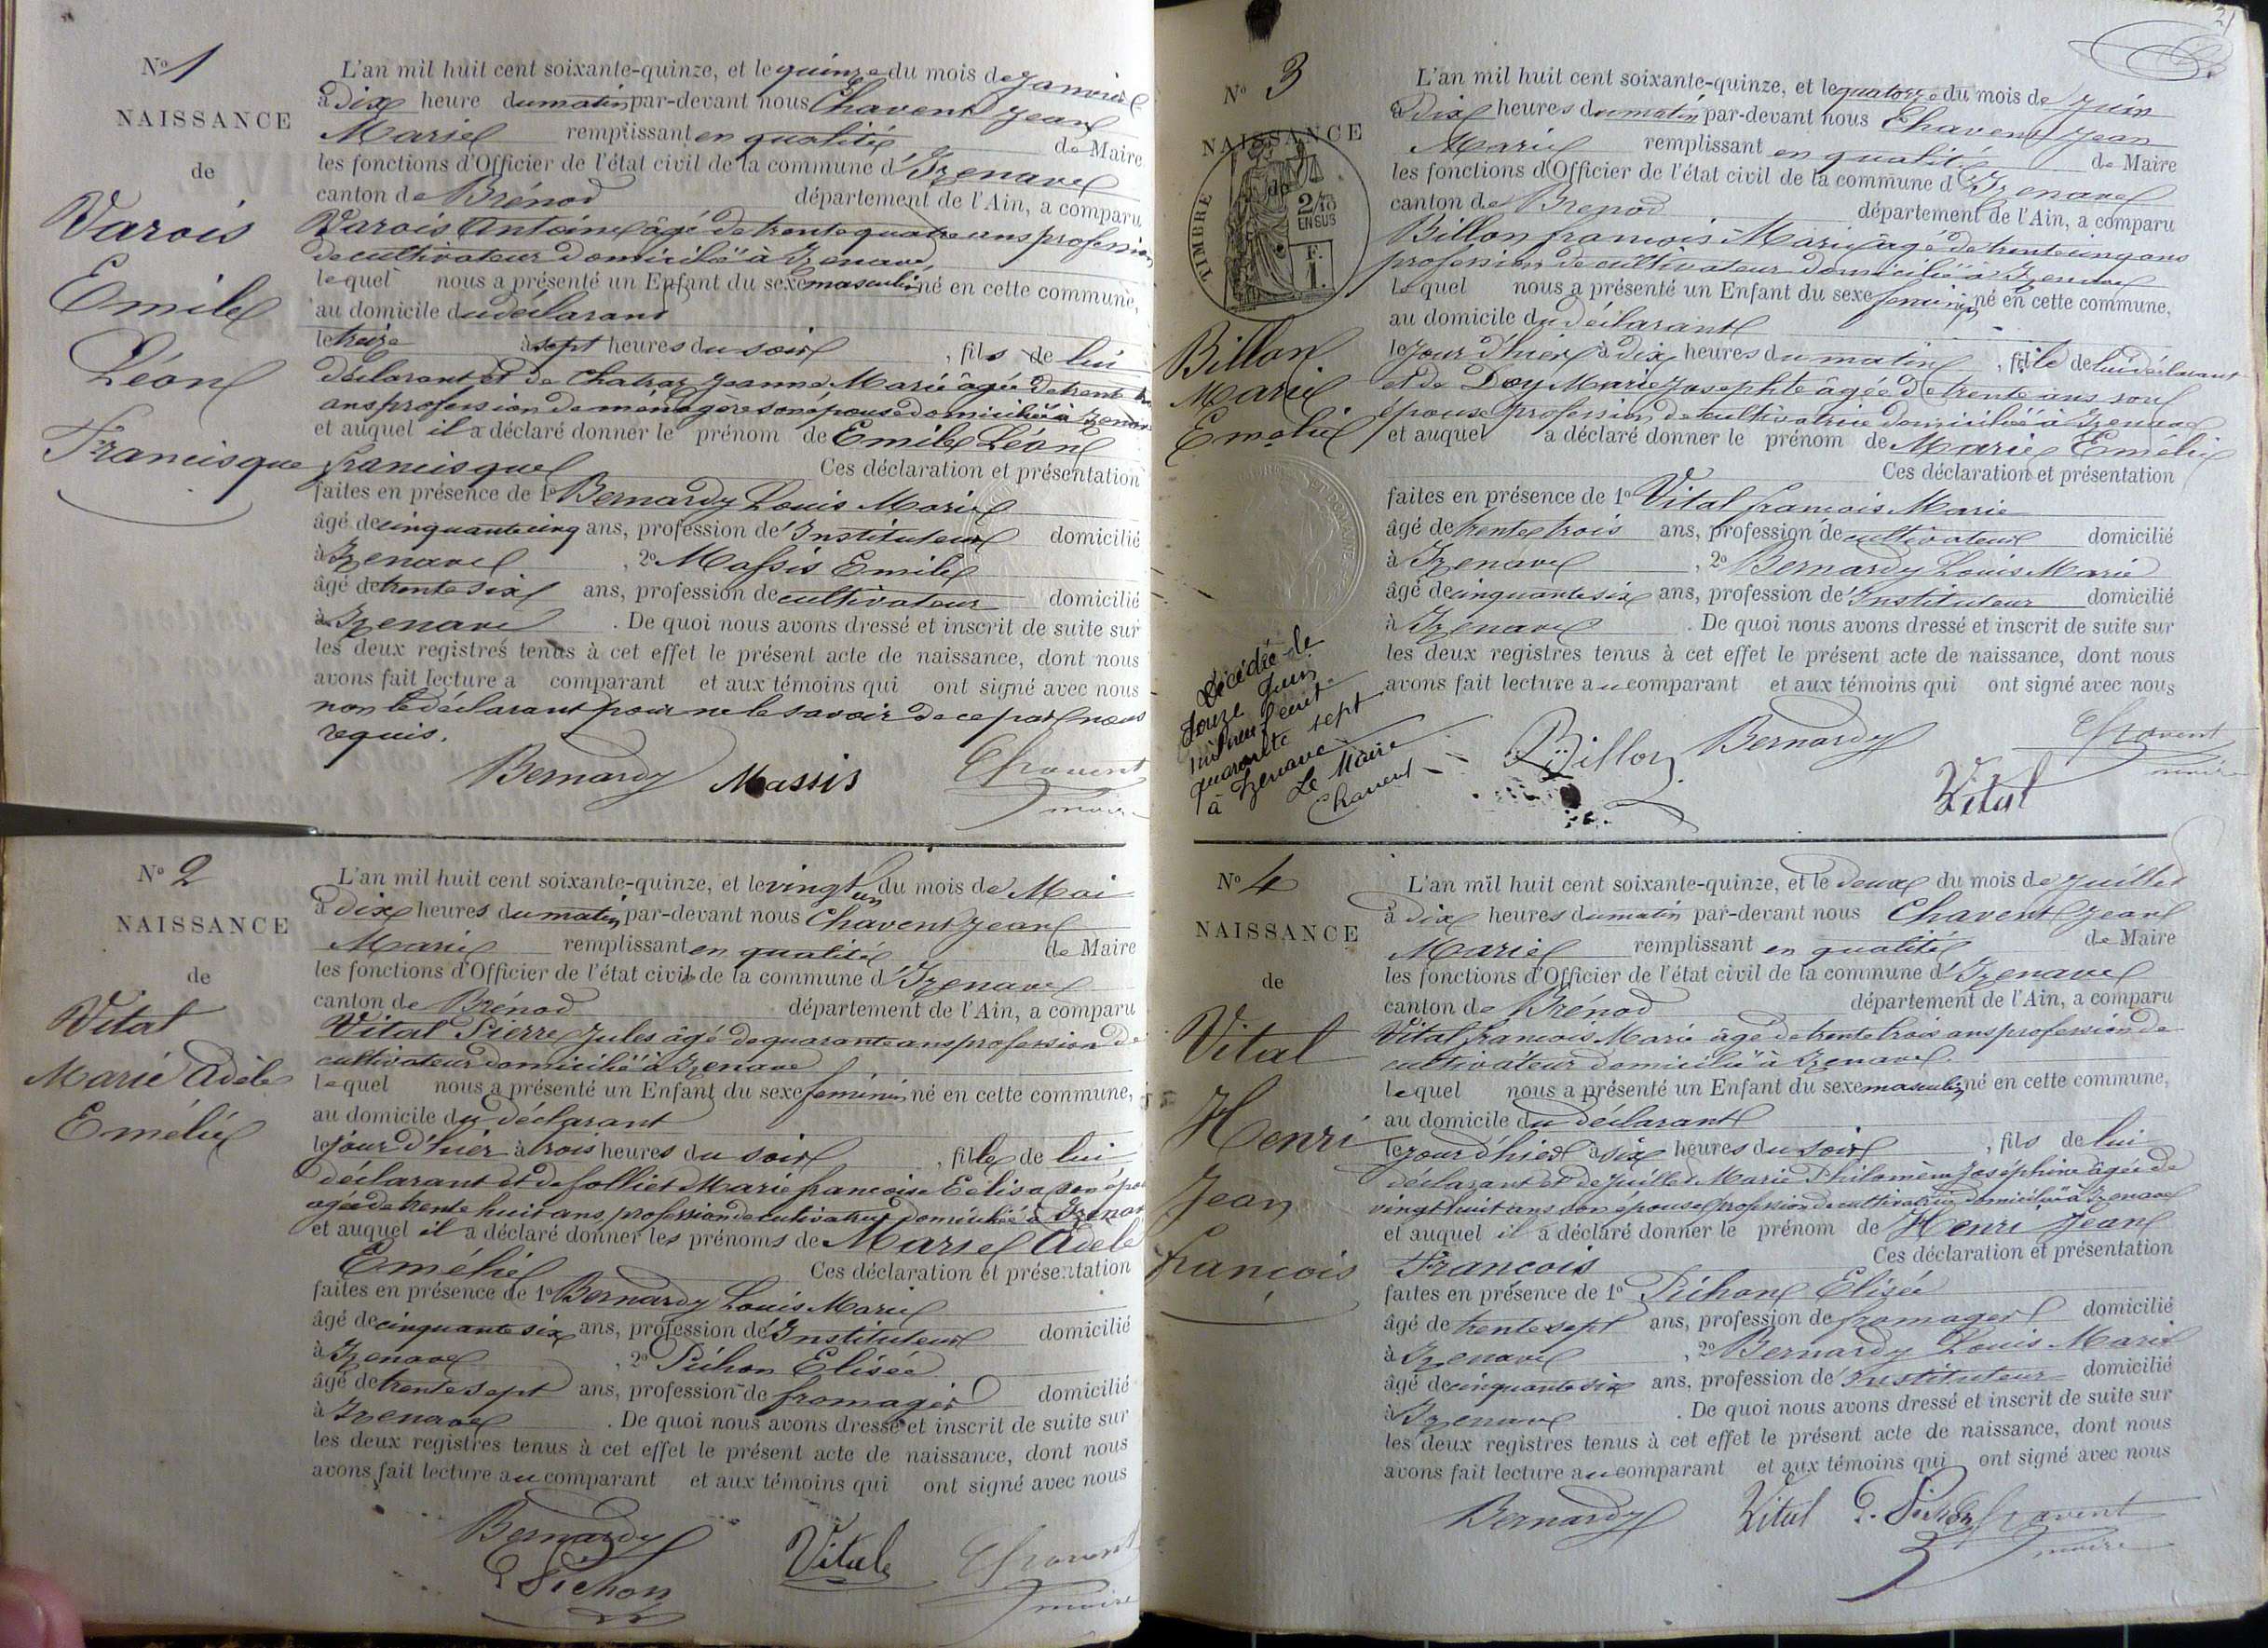 N° 1
NAISSANCE
de
Varois
Emile
Léon
Francisque
L'an mil huit cent soixante-quinze, et le quinze du mois de Janvier
à dix heure du matin par-devant nous Chavent Jean
Marie remplissant en qualité de Maire
les fonctions d'Officier de l'état civil de la commune d'Izenave
canton de Brénod département de l'Ain, a comparu
Varois Antoine âgé de trente quatre ans profession
de cultivateur domicilié à Izenave,
lequel nous a présenté un Enfant du sexe masculin né en cette commune,
au domicile du déclarant
le treize à sept heures du soir, fils de lui
déclarant et de Chatraz Jeanne Marie âgée de trente
ans profession de ménagère son épouse domiciliée à Izenave
et auquel il a déclaré donner le prénom de Emile Léon
francisque Ces déclaration et présentation
faites en présence de 1° Bernardy Louis Marie
âgé de cinquante cinq ans, profession d'Instituteur domicilié
à Izenave, 2° Massis Emile
âgé de trente six ans, profession de cultivateur domicilié
à Izenave. De quoi nous avons dressé et inscrit de suite sur
les deux registres tenus à cet effet le présent acte de naissance, dont nous
avons fait lecture a comparant et aux témoins qui ont signé avec nous
non le déclarant pour ne le savoir de ce par nous
requis.
Bernardy Massis Chavent
maire
N° 2
NAISSANCE
de
Vital
Marie Adèle
Emélie
L'an mil huit cent soixante-quinze, et le vingt un du mois de Mai
à dix heures du matin par-devant nous Chavent Jean
Marie remplissant en qualité de Maire
les fonctions d'Officier de l'état civil de la commune d'Izenave
canton de Brénod département de l'Ain, a comparu
Vital Pierre Jules âgé de quarante ans profession de
cultivateur domicilié à Izenave
lequel nous a présenté un Enfant du sexe feminin né en cette commune,
au domicile du déclarant
le jour d'hier à trois heures du soir, fille de lui
déclarant et de folliet Marie françoise Eelisa son
agée de trente huit ans, profession de cultivatrice domiciliée à Izenave
et auquel il a déclaré donner les prénoms de Marie Adèle
Emélie Ces déclaration et présentation
faites en présence de 1° Bernardy Louis Marie
âgé de cinquante six ans, profession d'Instituteur domicilié
à Izenave, 2° Pichon Elisée
âgé de trente sept ans, profession de fromager domicilié
à Izenave. De quoi nous avons dressé et inscrit de suite sur
les deux registres tenus à cet effet le présent acte de naissance, dont nous
avons fait lecture au comparant et aux témoins qui ont signé avec nous
Bernardy Vital Chavent
Pichon maire
21
N° 3
NAISSANCE
de
TIMBRE
2/10
EN SUS
F.
1.
Billon
Marie
Emelie
Décédée le
douze Juin
mil neuf cent
quarante sept
à Izenave
Le Maire
Chavent
L'an mil huit cent soixante-quinze, et le quatorze du mois de Juin
à dix heures du matin par-devant nous Chavent Jean
Marie remplissant en qualité de Maire
les fonctions d'Officier de l'état civil de la commune d'Izenave
canton de Brenod département de l'Ain, a comparu
Billon françois Marie âgé de trente cinq ans
profession de cultivateur domicilié à Izenave
lequel nous a présenté un Enfant du sexe feminin né en cette commune,
au domicile du déclarant
le jour d'hier à dix heures du matin, fille de lui déclarant
et de Doy Marie Josephte âgée de trente ans son
épouse profession de cultivatrice domiciliée à Izenave
et auquel a déclaré donner le prénom de Marie Emélie
Ces déclaration et présentation
faites en présence de 1° Vital françois Marie
âgé de trente trois ans, profession de cultivateur domicilié
à Izenave, 2° Bernardy Louis Marie
âgé de cinquante six ans, profession d'Instituteur domicilié
à Izenave. De quoi nous avons dressé et inscrit de suite sur
les deux registres tenus à cet effet le présent acte de naissance, dont nous
avons fait lecture au comparant et aux témoins qui ont signé avec nous
Billon Bernardy Chavent
Vital maire
N° 4
NAISSANCE
de
Vital
Henri
Jean
françois
L'an mil huit cent soixante-quinze, et le deux du mois de Juillet
à dix heures du matin par-devant nous Chavent Jean
Marie remplissant en qualité de Maire
les fonctions d'Officier de l'état civil de la commune d'Izenave
canton de Brénod département de l'Ain, a comparu
Vital françois Marie âgé de trente trois ans profession de
cultivateur domicilié à Izenave.
lequel nous a présenté un Enfant du sexe masculin né en cette commune,
au domicile du déclarant
le jour d'hier à six heures du soir, fils de lui
déclarant et de Juillet Marie Philomène Joséphine âgée de
vingt huit ans son épouse profession de cultivatrice domiciliée à Izenave
et auquel il a déclaré donner le prénom de Henri Jean
François Ces déclaration et présentation
faites en présence de 1° Pichon Elisée
âgé de trente sept ans, profession de fromager domicilié
à Izenave, 2° Bernardy Louis Marie
âgé de cinquante six ans, profession d'Instituteur domicilié
à Izenave. De quoi nous avons dressé et inscrit de suite sur
les deux registres tenus à cet effet le présent acte de naissance, dont nous
avons fait lecture au comparant et aux témoins qui ont signé avec nous
Bernardy Vital Pichon Chavent
maire